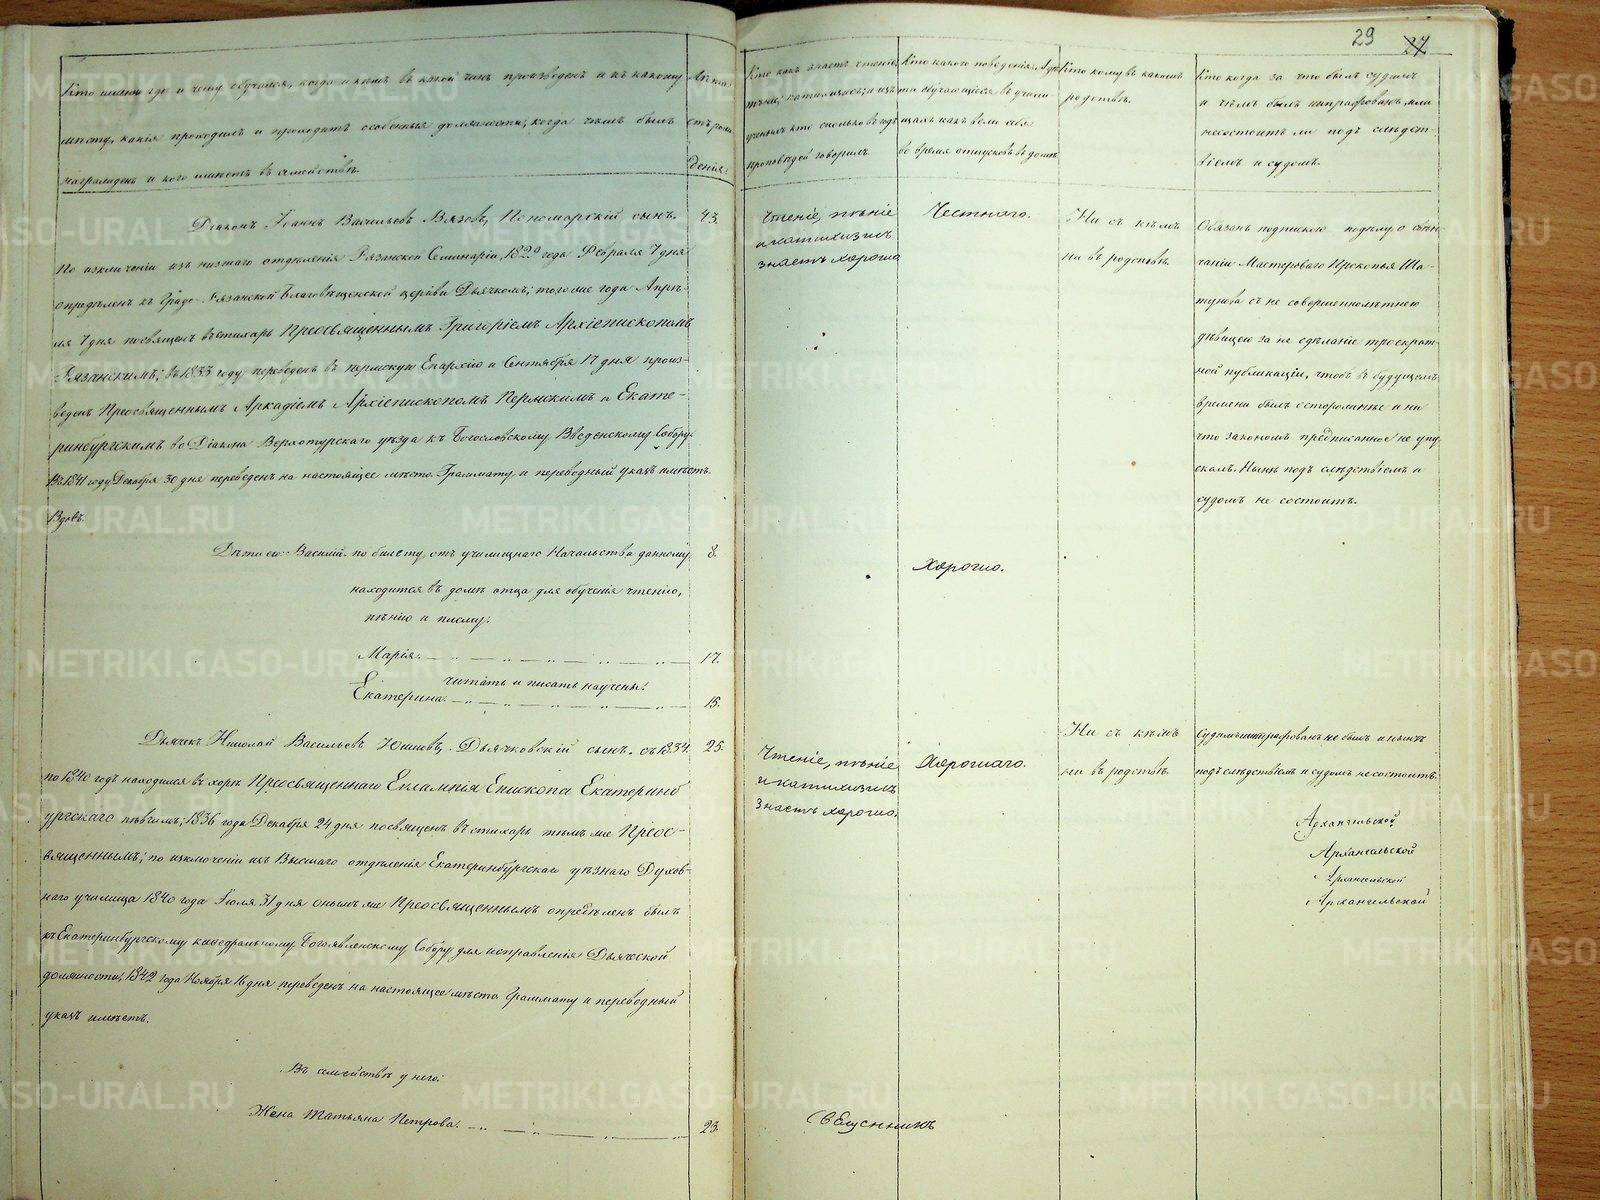 29 27
Кто именно где и чему обучался, когда и кѣмъ въ какой чинъ произведенъ и къ какому
мѣсту, какія проходилъ и проходитъ особенныя должности, когда чѣмъ былъ
награжденъ и кого имѣетъ въ семействѣ.
Лѣта
отъ рож
денія.
Кто какъ знаетъ чтеніе
пѣніе, катихизисъ; и изъ
ученыхъ кто сколько въ годъ
проповѣдей говорилъ
Кто какого поведенія. А
ти обучающіеся въ учили-
щахъ какъ вели себя
во время отпусковъ въ домы
Кто кому въ какомъ
родствѣ.
Кто когда за что былъ судимъ
и чѣмъ былъ штрафованъ или
несостоитъ ли подъ слѣдст-
віемъ и судомъ.
Діаконъ Іоаннъ Васильевъ Вязовъ, Пономарскій сынъ.
43.
По изключеніи изъ низшаго отдѣленія Рязанской Семинаріи, 1829 года Февраля 7 дня
опредѣленъ къ Градо-Рязанской Благовѣщенской церкви Дьячкомъ; того же года Апрѣ-
ля 7 дня посвященъ въ стихарь Преосвященнымъ Григоріемъ Архіепископомъ
Рязанскимъ; въ 1833 году переведенъ въ пермскую Епархію и Сентября 17 дня произ-
веденъ Преосвященнымъ Аркадіемъ Архіепископомъ Пермскимъ и Екате-
ринбургскимъ во Діакона Верхотурскаго уѣзда къ Богословскому Введенскому Собору.
Въ 1841 году Декабря 30 дня переведенъ на настоящее мѣсто. Граммату и переводный указъ имѣетъ.
Вдовъ.
Чтеніе, пѣніе
и катихизисъ
знаетъ хорошо
Честнаго.
Ни съ кѣмъ
ни въ родствѣ.
Обязанъ подпискою по дѣлу о вѣн-
чаніи Мастероваго Прокопья Ша-
тунова съ не совершеннолѣтнею
дѣвицею за не сдѣланіе троекрат-
ной публикаціи, чтобъ въ будущемъ
времени былъ остороженъ и ни
что закономъ предписанное не упу
скалъ. Нынѣ подъ слѣдствіемъ и
судомъ не состоитъ.
Дѣти его: Василій по билету, отъ училищнаго Начальства данному,
8.
находится въ домѣ отца для обученія чтенію,
пѣнію и письму.
Хорошо.
Марія.
17.
читать и писать научены.
Екатерина.
15.
Дьячекъ Николай Васильевъ Юшневъ, Дьячковскій сынъ. съ 1834.
25.
по 1840 годъ находился въ хорѣ Преосвященнаго Евлампія Епископа Екатеринб
ургскаго пѣвчимъ; 1836 года Декабря 24 дня посвященъ въ стихарь тѣмъ же Преос-
вященнымъ; по изключеніи изъ Высшаго отдѣленія Екатеринбургскаго уѣзнаго Духов-
наго училища 1840 года Іюля 31 дня онымъ же Преосвященнымъ опредѣленъ былъ
къ Екатеринбургскому каѳедральному Богоявленскому Собору для исправленія Дьяческой
должности; 1842 года Ноября 16 дня переведенъ на настоящее мѣсто. Граммату и переводный
указъ имѣетъ.
Чтеніе, пѣніе
и катихизисъ
знаетъ хорошо.
Хорошаго.
Ни съ кѣмъ
ни въ родствѣ.
Судимъ и штрафованъ не былъ и нынѣ
подъ слѣдствіемъ и судомъ не состоитъ.
Архангельской
Архангельской
Архангельской
Архангельской
Въ семействѣ у него:
Жена Татьяна Петрова.
23.
Священникъ
METRIKI.GASO-URAL.RU